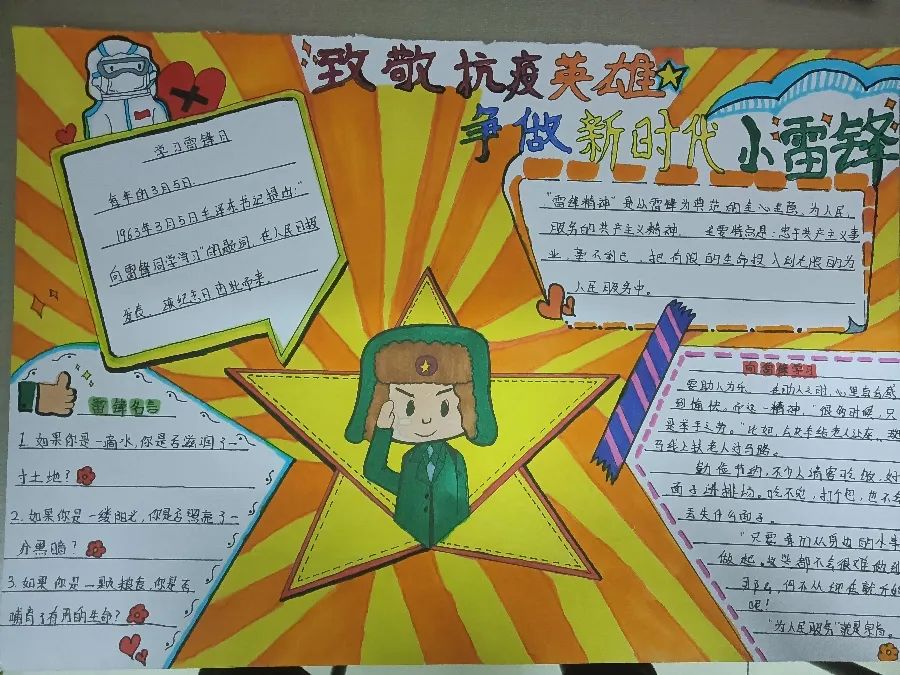 致敬抗疫英雄
争做新时代小雷锋
学习雷锋日
每年的3月5日.
1963年3月5日毛泽东书记提出:"
向雷锋同学习"的歌词,在人民日报
发表,该纪念日由此而来.
"雷锋精神"是以雷锋为典范的主心主题,为人民,
服务的共产主义精神.主要特点是:忠于共产主义事
业,毫不利己,把有限的生命投入到无限的为
人民服务中.
雷锋名言
1.如果你是一滴水,你是否滋润了一
寸土地?
2.如果你是一缕阳光,你是否照亮了一
分黑暗?
3.如果你是一颗粮食,你是否
哺育了有用的生命?
向雷锋学习
要助人为乐.在助人之时,心里自会感
到愉快.而这一精神"很多时候,只
是举手之劳."比如,公交车给老人让座,
马线上扶老人过马路.
勤俭节约.不少人请客吃饭,好
面子讲排场.吃不完,打个包,也不会
丢失什么面子.
"只要我们从身边的小事
做起.这些都不会很难做到
那么,何不从现在就开始
吧!
"为人民服务"就是宗旨.